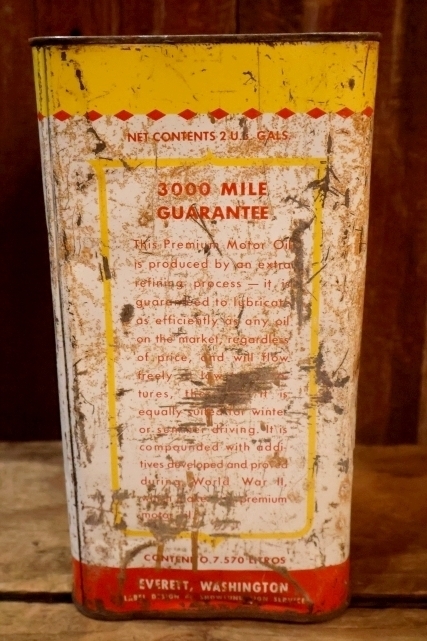 NET CONTENTS 2 U.S. GALS.
3000 MILE
GUARANTEE
This Premium Motor Oil
is produced by an extra
refining process — it is
guaranteed to lubricate
as efficiently as any oil
on the market, regardless
of price, and will flow
freely
tures, It is
equally suited for winter
or summer driving. It is
compounded with addi-
tives developed and proved
during World War II,
premium
motor
CONTENIDO, 7.570 LITROS
EVERETT, WASHINGTON